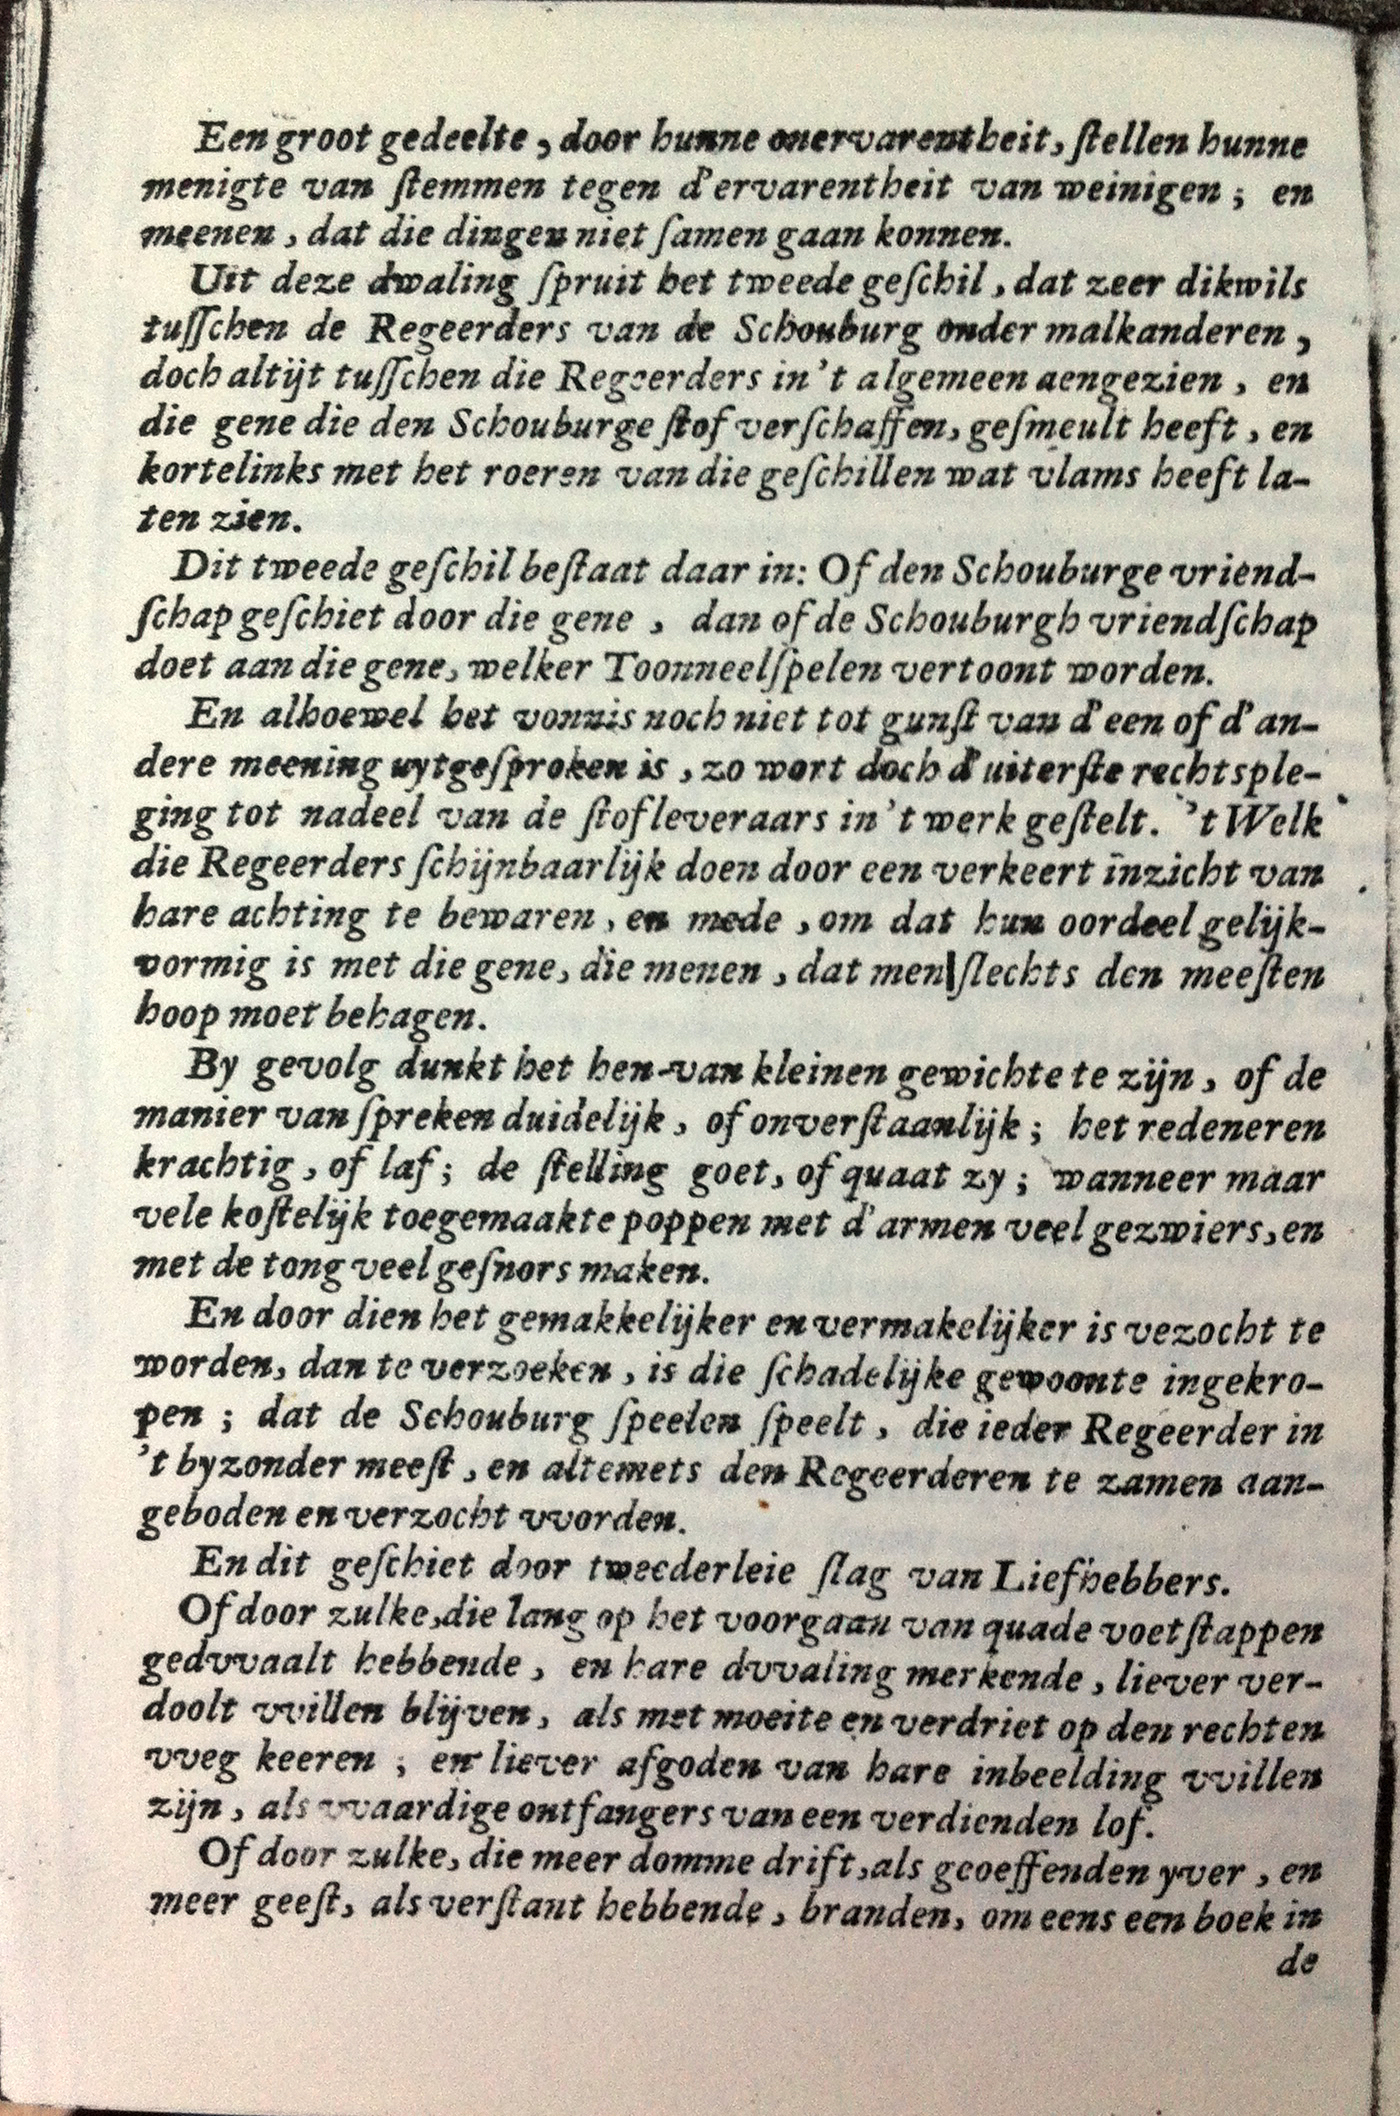 Een groot gedeelte, door hunne onervarentheit, ſtellen hunne
menigte van ſtemmen tegen d'ervarentheit van weinigen; en
meenen, dat die dingen niet ſamen gaan konnen.
Uit deze dwaling ſpruit het tweede geſchil, dat zeer dikwils
tuſſchen de Regeerders van de Schouburg onder malkanderen,
doch altijt tuſſchen die Regeerders in't algemeen aengezien, en
die gene die den Schouburge ſtof verſchaffen, geſmeult heeft, en
kortelinks met het roeren van die geſchillen wat vlams heeft la-
ten zien.
Dit tweede geſchil beſtaat daar in: Of den Schouburge vriend-
ſchap geſchiet door die gene, dan of de Schouburgh vriendſchap
doet aan die gene, welker Toonneelſpelen vertoont worden.
En alhoewel het vonnis noch niet tot gunſt van d'een of d'an-
dere meening uytgeſproken is, zo wort doch d'uiterſte rechtsple-
ging tot nadeel van de ſtofleveraars in't werk geſtelt. 't Welk
die Regeerders ſchijnbaarlijk doen door een verkeert inzicht van
hare achting te bewaren, en mede, om dat hun oordeel gelijk-
vormig is met die gene, die menen, dat men ſlechts den meeſten
hoop moet behagen.
By gevolg dunkt het hen van kleinen gewichte te zijn, of de
manier van ſpreken duidelijk, of onverſtaanlijk; het redeneren
krachtig, of laf; de ſtelling goet, of quaat zy; wanneer maar
vele koſtelijk toegemaakte poppen met d'armen veel gezwiers, en
met de tong veel geſnors maken.
En door dien het gemakkelijker en vermakelijker is vezocht te
worden, dan te verzoeken, is die ſchadelijke gewoonte ingekro-
pen; dat de Schouburg ſpeelen ſpeelt, die ieder Regeerder in
't byzonder meeſt, en altemets den Regeerderen te zamen aan-
geboden en verzocht vvorden.
En dit geſchiet door tweederleie ſlag van Liefhebbers.
Of door zulke, die lang op het voorgaan van quade voetſtappen
gedvvaalt hebbende, en hare dvvaling merkende, liever ver-
doolt vvillen blijven, als met moeite en verdriet op den rechten
vveg keeren; en liever afgoden van hare inbeelding vvillen
zijn, als vvaardige ontfangers van een verdienden lof.
Of door zulke, die meer domme drift, als geoeffenden yver, en
meer geeſt, als verſtant hebbende, branden, om eens een boek in
de